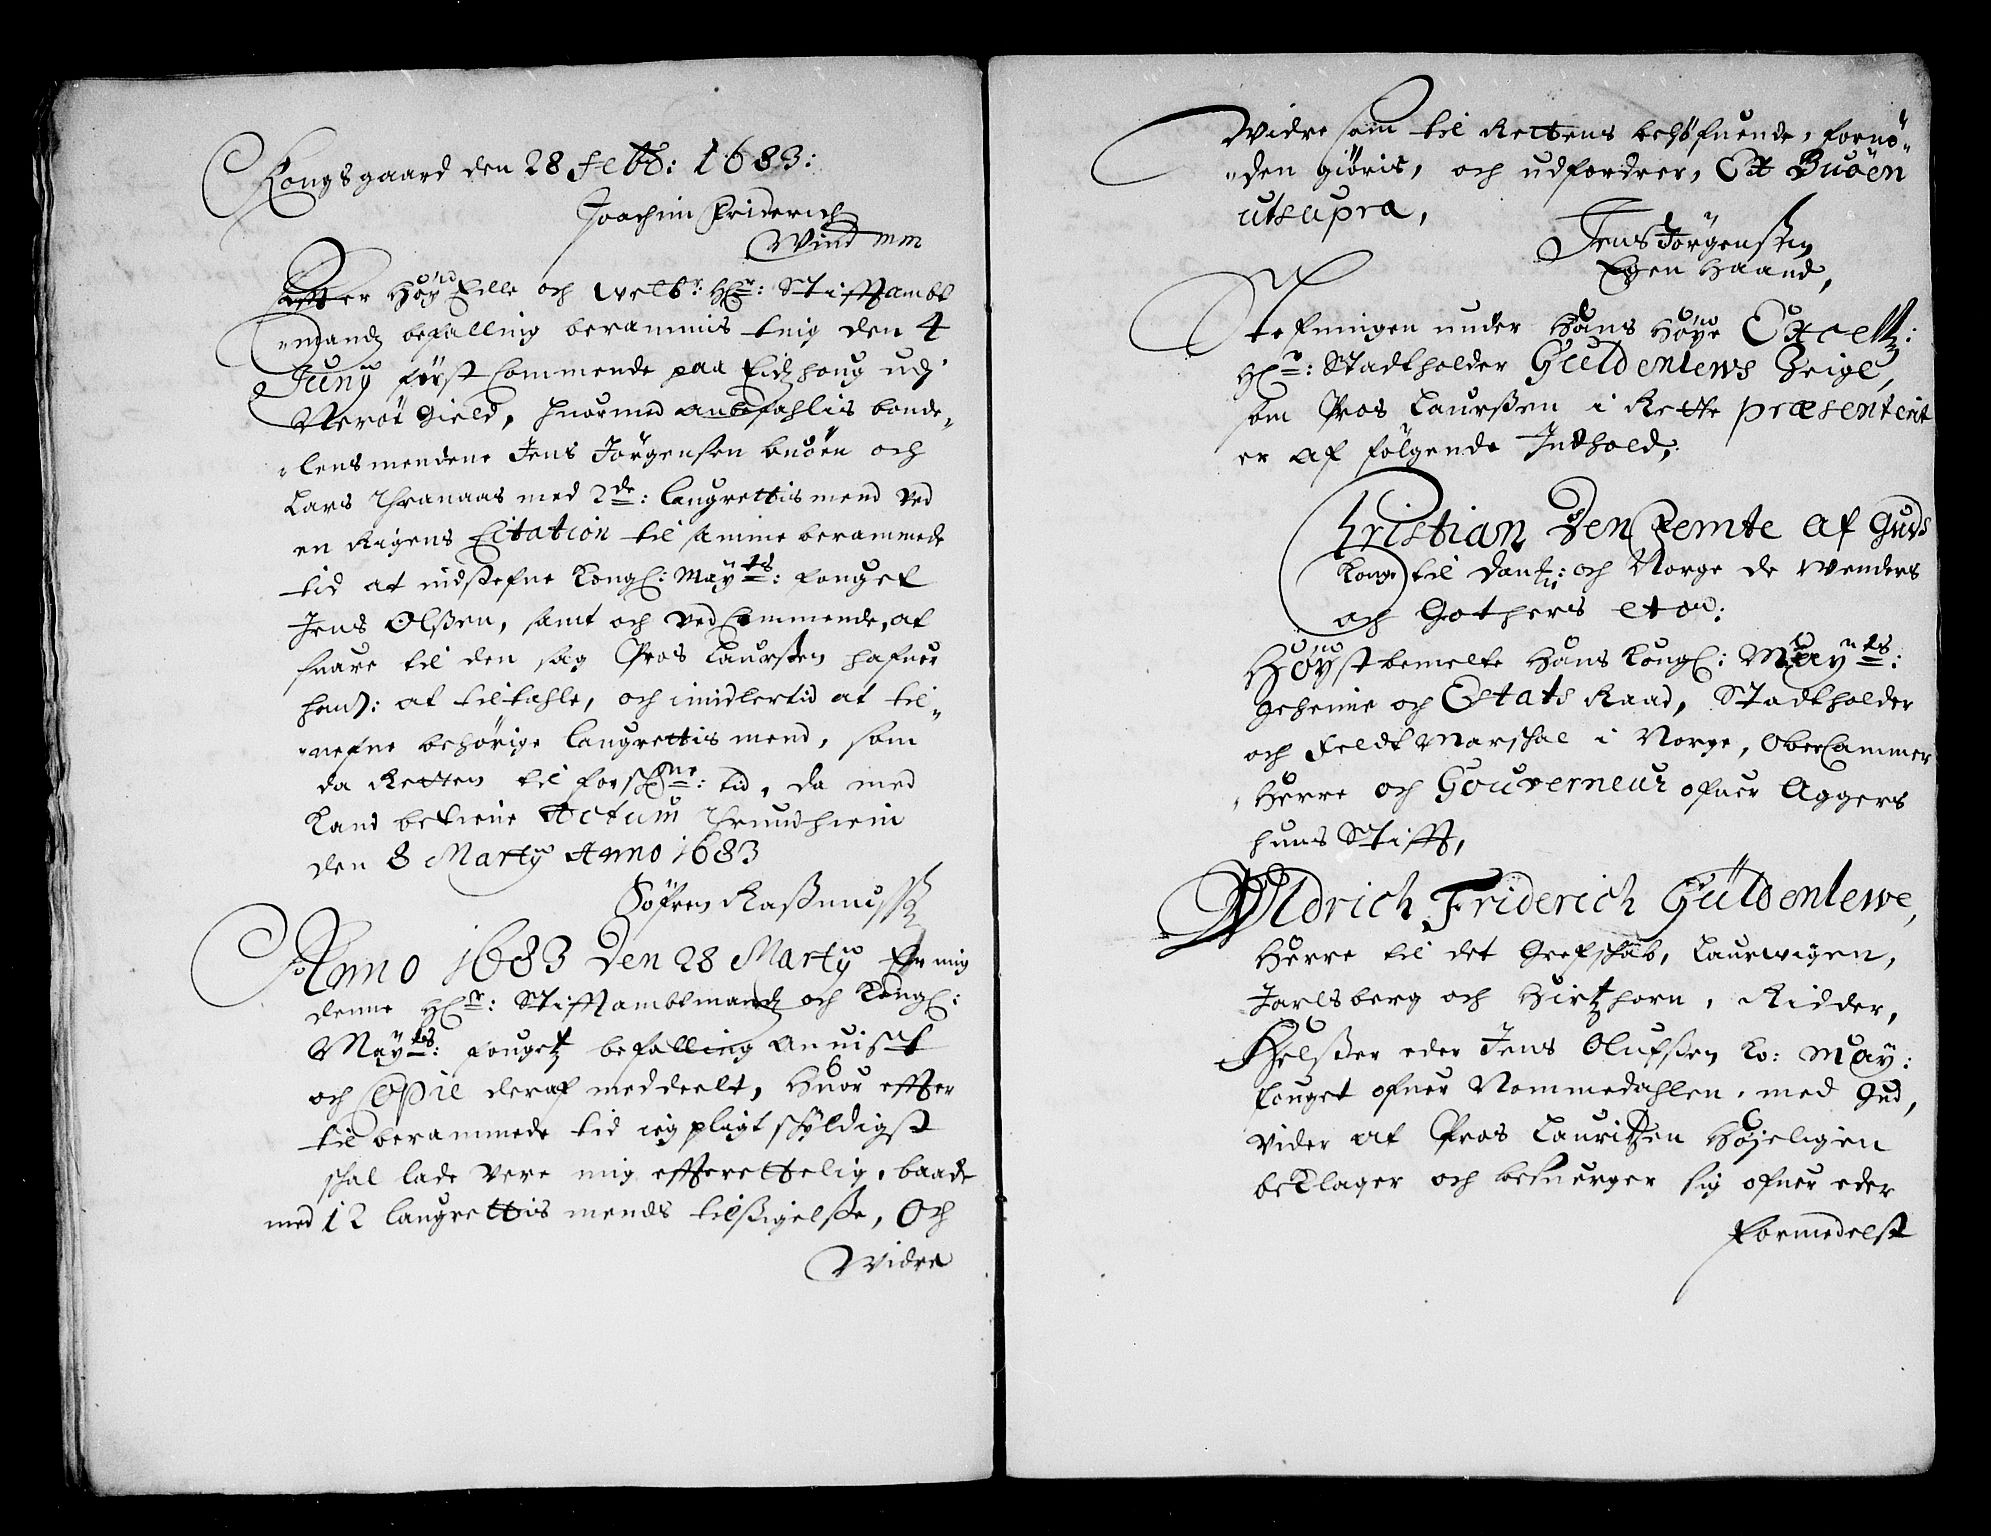 Kongsgaard den 28 Febb: 1683:
Joachim Friderich
Wind mm
Effter Høy Edle och welb: Hr: Stifftambt
mandz befalling berammis ting den 4
Junÿ først Commende paa Eidzhoug udj
Nerøe Gield, huormed anbefahlis bonde„
„lensmendene Jens Jörgensen buöen och
Lars Thranaas med 2de: laugrettis mend ved
en Rigens Citation til samme berammede
tid at indstefne Kongl: Maÿts: fouget
Jens Olßen, samt och vedCommende, at
suare til den sag Pros Laurßen hafuer
hans: at tiltahle, och imidlertid at til„
„nefne behørige laugrettis mend, som
da Retten til forschne: tid, da med
Kand betiene Actum Thrundhiem
den 8 Martÿ Anno 1683
Söfren Raßmussen
Anno 1683 Den 28 Martÿ Er mig
denne Hr: Stifftambtmandz och Kongl:
Maÿts: fougetz befalling anuist
och Copie deraf meddeelt, Huor effter
til berammede tid ieg pligt schÿldigst
schal lade vere mig efterrettelig, baade
med 12 laugrettis mends tilsigelße, Och
Widre
Widre som til Rettens behøfuende, fornö„
„den giöris, och udfordrer, Ex Buöen
utsupra,
Jens Jörgenßen
Egen Haand,
Stefningen under Hans Høÿe Excell:
Hr: Stadtholder Güldenlews Seigl,
som Pros Laurßen i Rette præsenterit
er af følgende Indhold,
Christian Den Femte af Guds
Konge til Dan: och Norge de Wenders
och Gothers etc:
Høÿstbemelte Hans Kongl: Maÿts:
Geheime och Estats Raad, Stadtholder
och Feldt Marschal i Norge, OberCammer
„Herre och Gouverneur ofuer Aggers
huus Stifft,
Uldrich Friderich Güldenlewe,
Herre til det Grefschab, Laurwigen,
Jarlsberg och Hirtzhorn, Ridder,
Helßer eder Jens Olufßen Ko: Maÿ:
fouget ofuer Nommedahlen, med Gud,
Vider at Pros Lauritzen Højeligen
beklager och besuerger sig ofuer eder
Formedelst